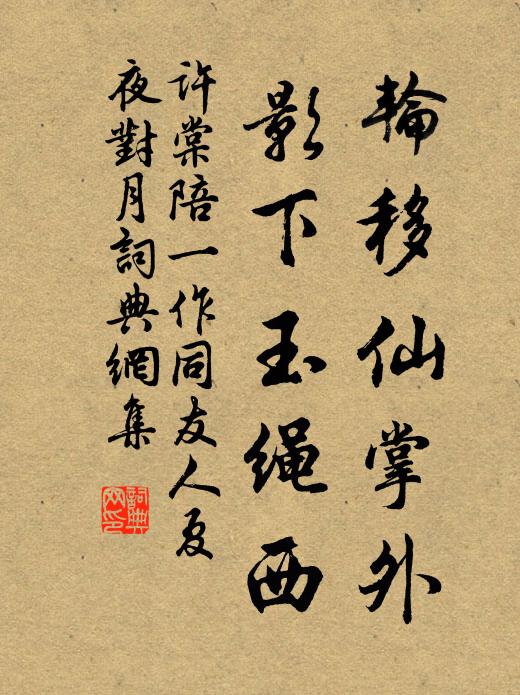 輪移仙掌外
影下玉绳西
許棠陪一作同友人夏
夜對月詞典網集
詞典
网印